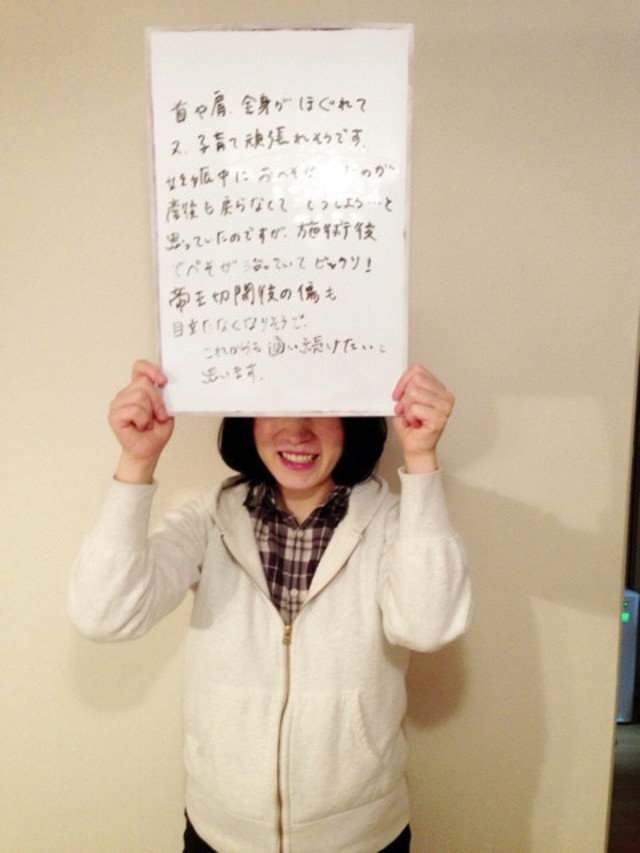 首や肩、全身がほぐれて
又、子育て頑張れそうです。
妊娠中に おへそが のが
産後も戻らなくて どうしよう…と
思っていたのですが、施術後
でべそが治っていてビックリ!
帝王切開後の傷も
目立たなくなりそうで、
これからも通い続けたいと
思います。